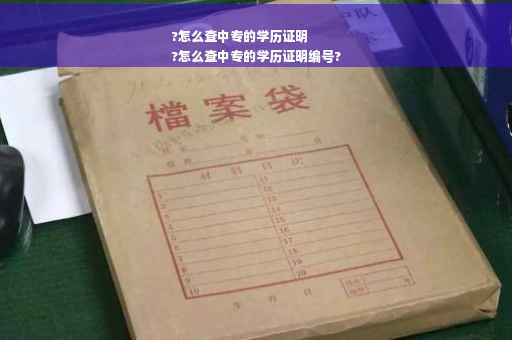 ?怎么查中专的学历证明
?怎么查中专的学历证明编号?
檔案袋
材料目次
1
2
3
4
5
6
7
8
9
10
11
12
13
14
15
16
17
18
19
20
年 月 日
号